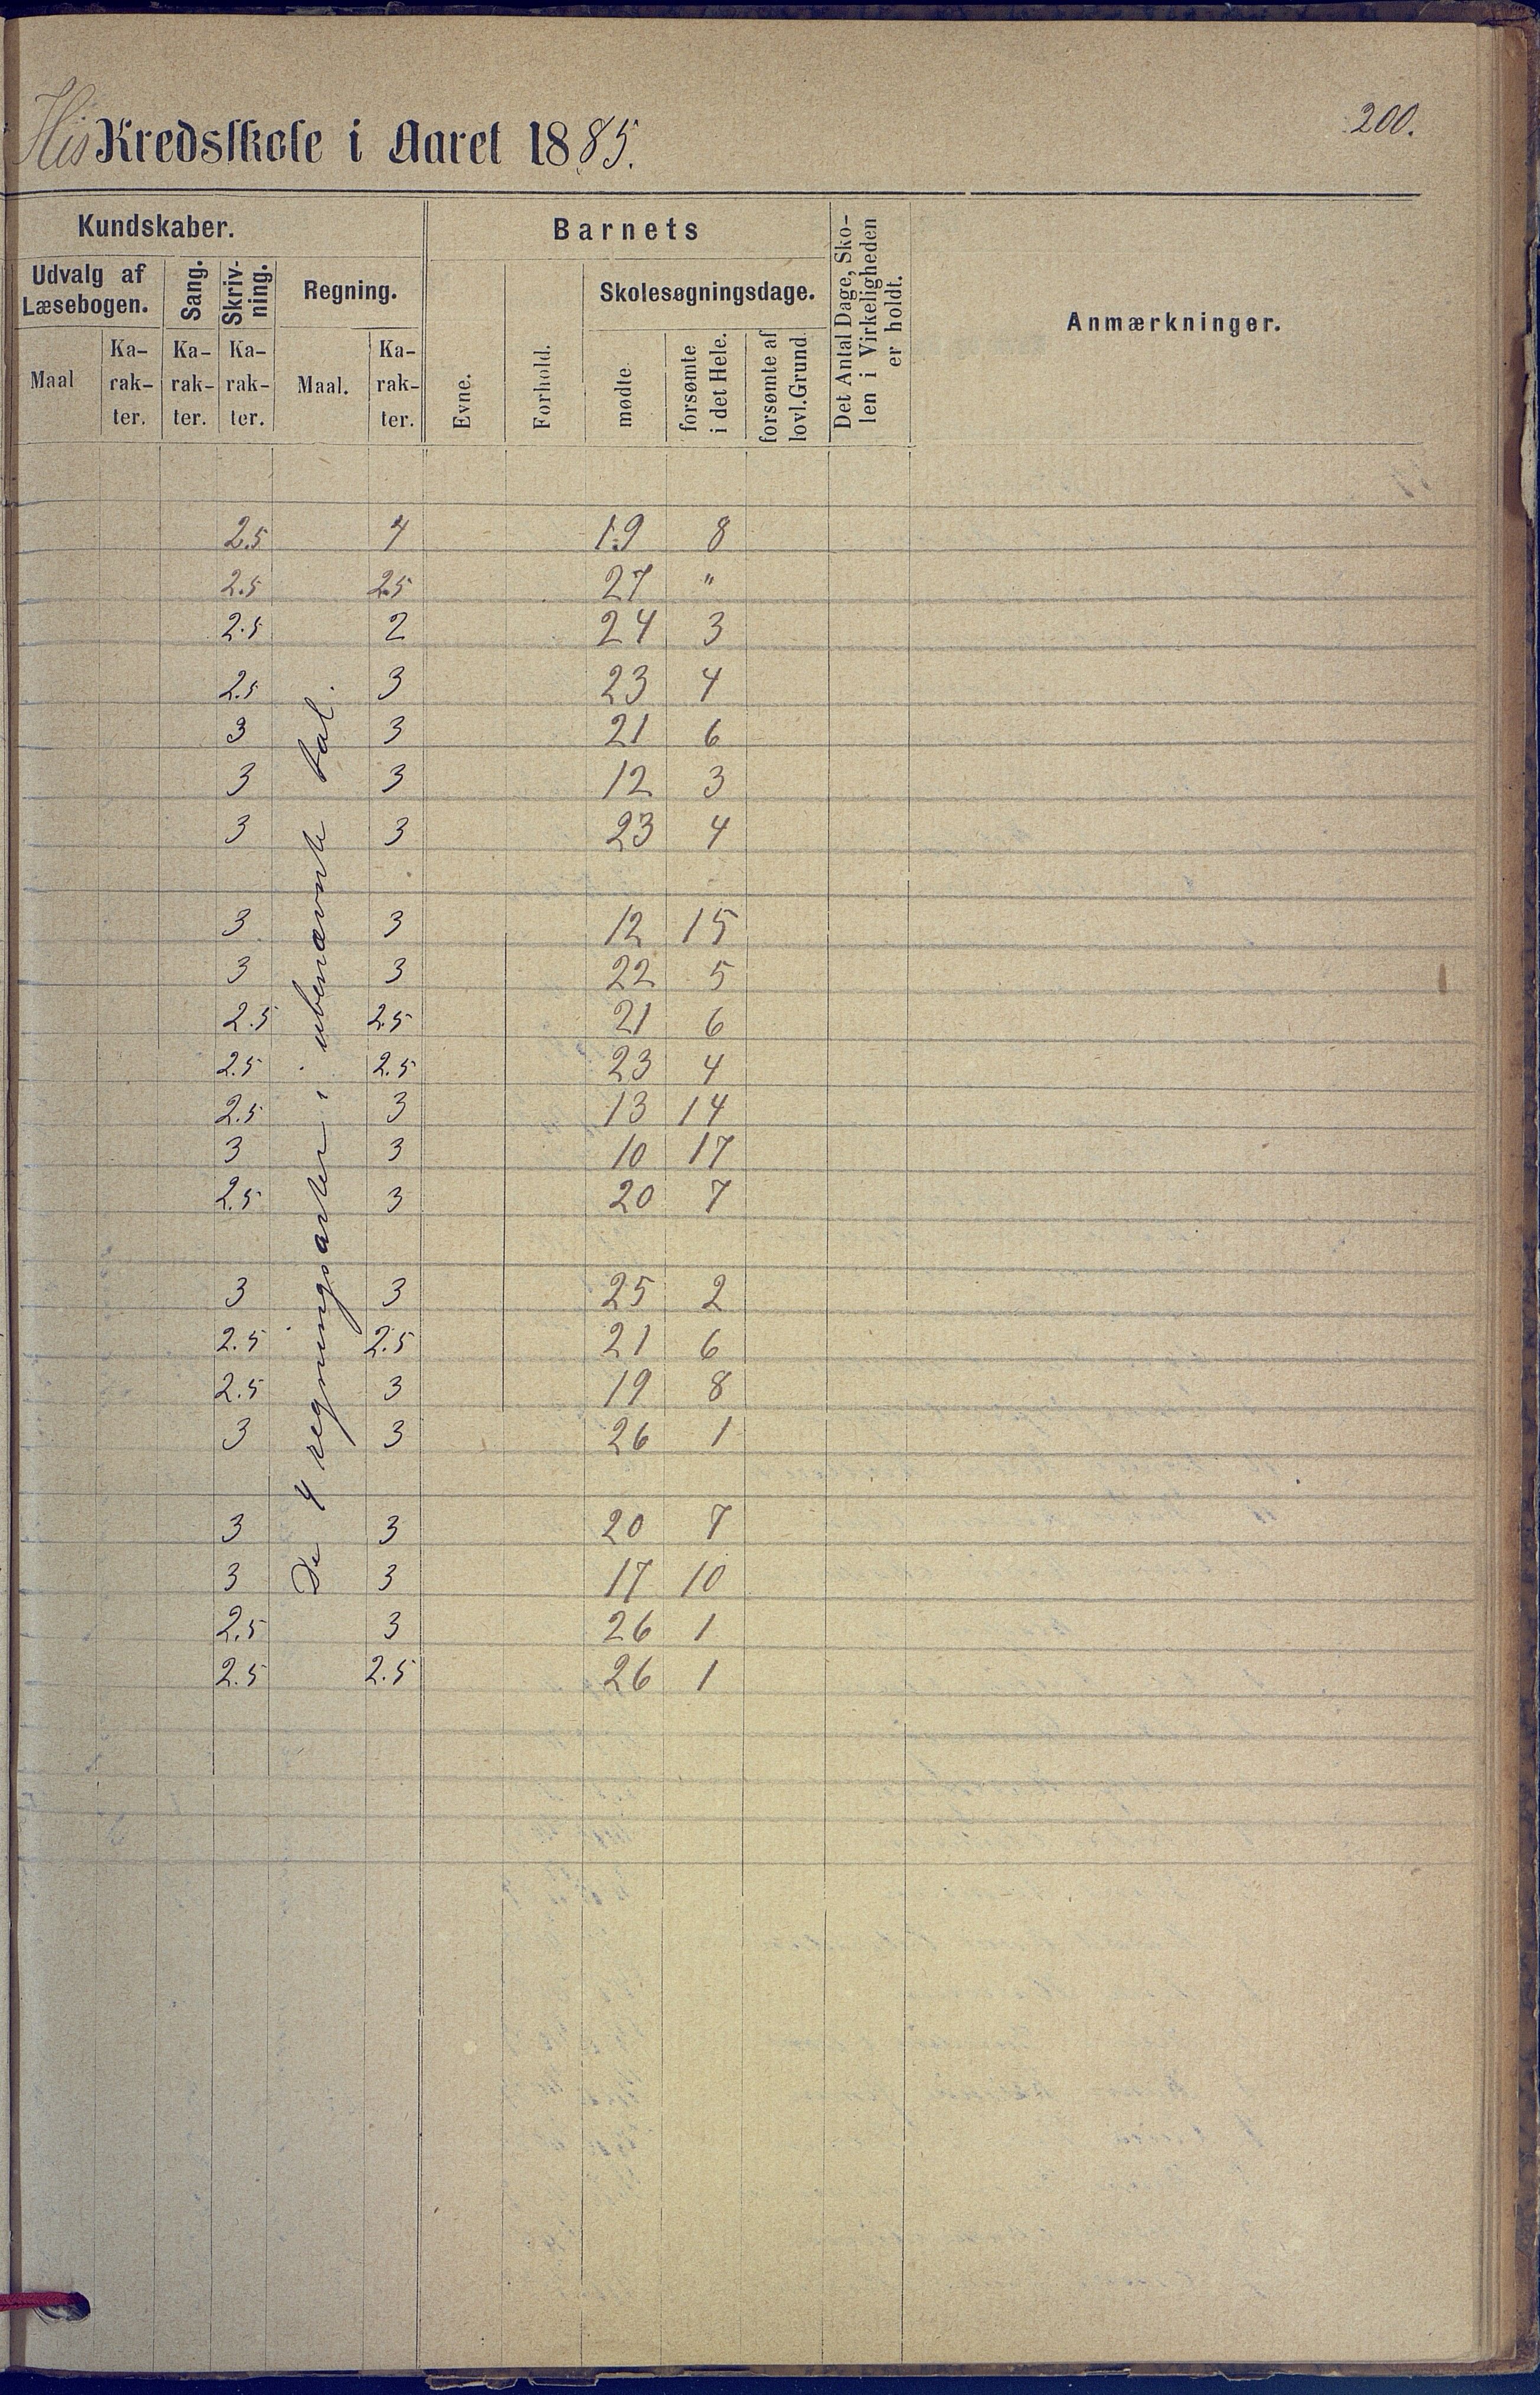 200.
His Kredsskole i Aaret 1885.
Kundskaber. Barnets Det Antal Dage, Sko-
len i Virkeligheden
er holdt. Anmærkninger.
Udvalg af
Læsebogen. Sang. Skriv-
ning. Regning. Evne. Forhold. Skolesøgningsdage.
Maal Ka-
rak-
ter. Ka-
rak-
ter. Ka-
rak-
ter. Maal. Ka-
rak-
ter. mødte forsømte
i det Hele. forsømte af
lovl. Grund.
De 4 regningsarter i ubenævnte tal.
2.5 4 19 8
2.5 2.5 27 "
2.5 2 24 3
2.5 3 23 4
3 3 21 6
3 3 12 3
3 3 23 4
3 3 12 15
3 3 22 5
2.5 2.5 21 6
2.5 2.5 23 4
2.5 3 13 14
3 3 10 17
2.5 3 20 7
3 3 25 2
2.5 2.5 21 6
2.5 3 19 8
3 3 26 1
3 3 20 7
3 3 17 10
2.5 3 26 1
2.5 2.5 26 1